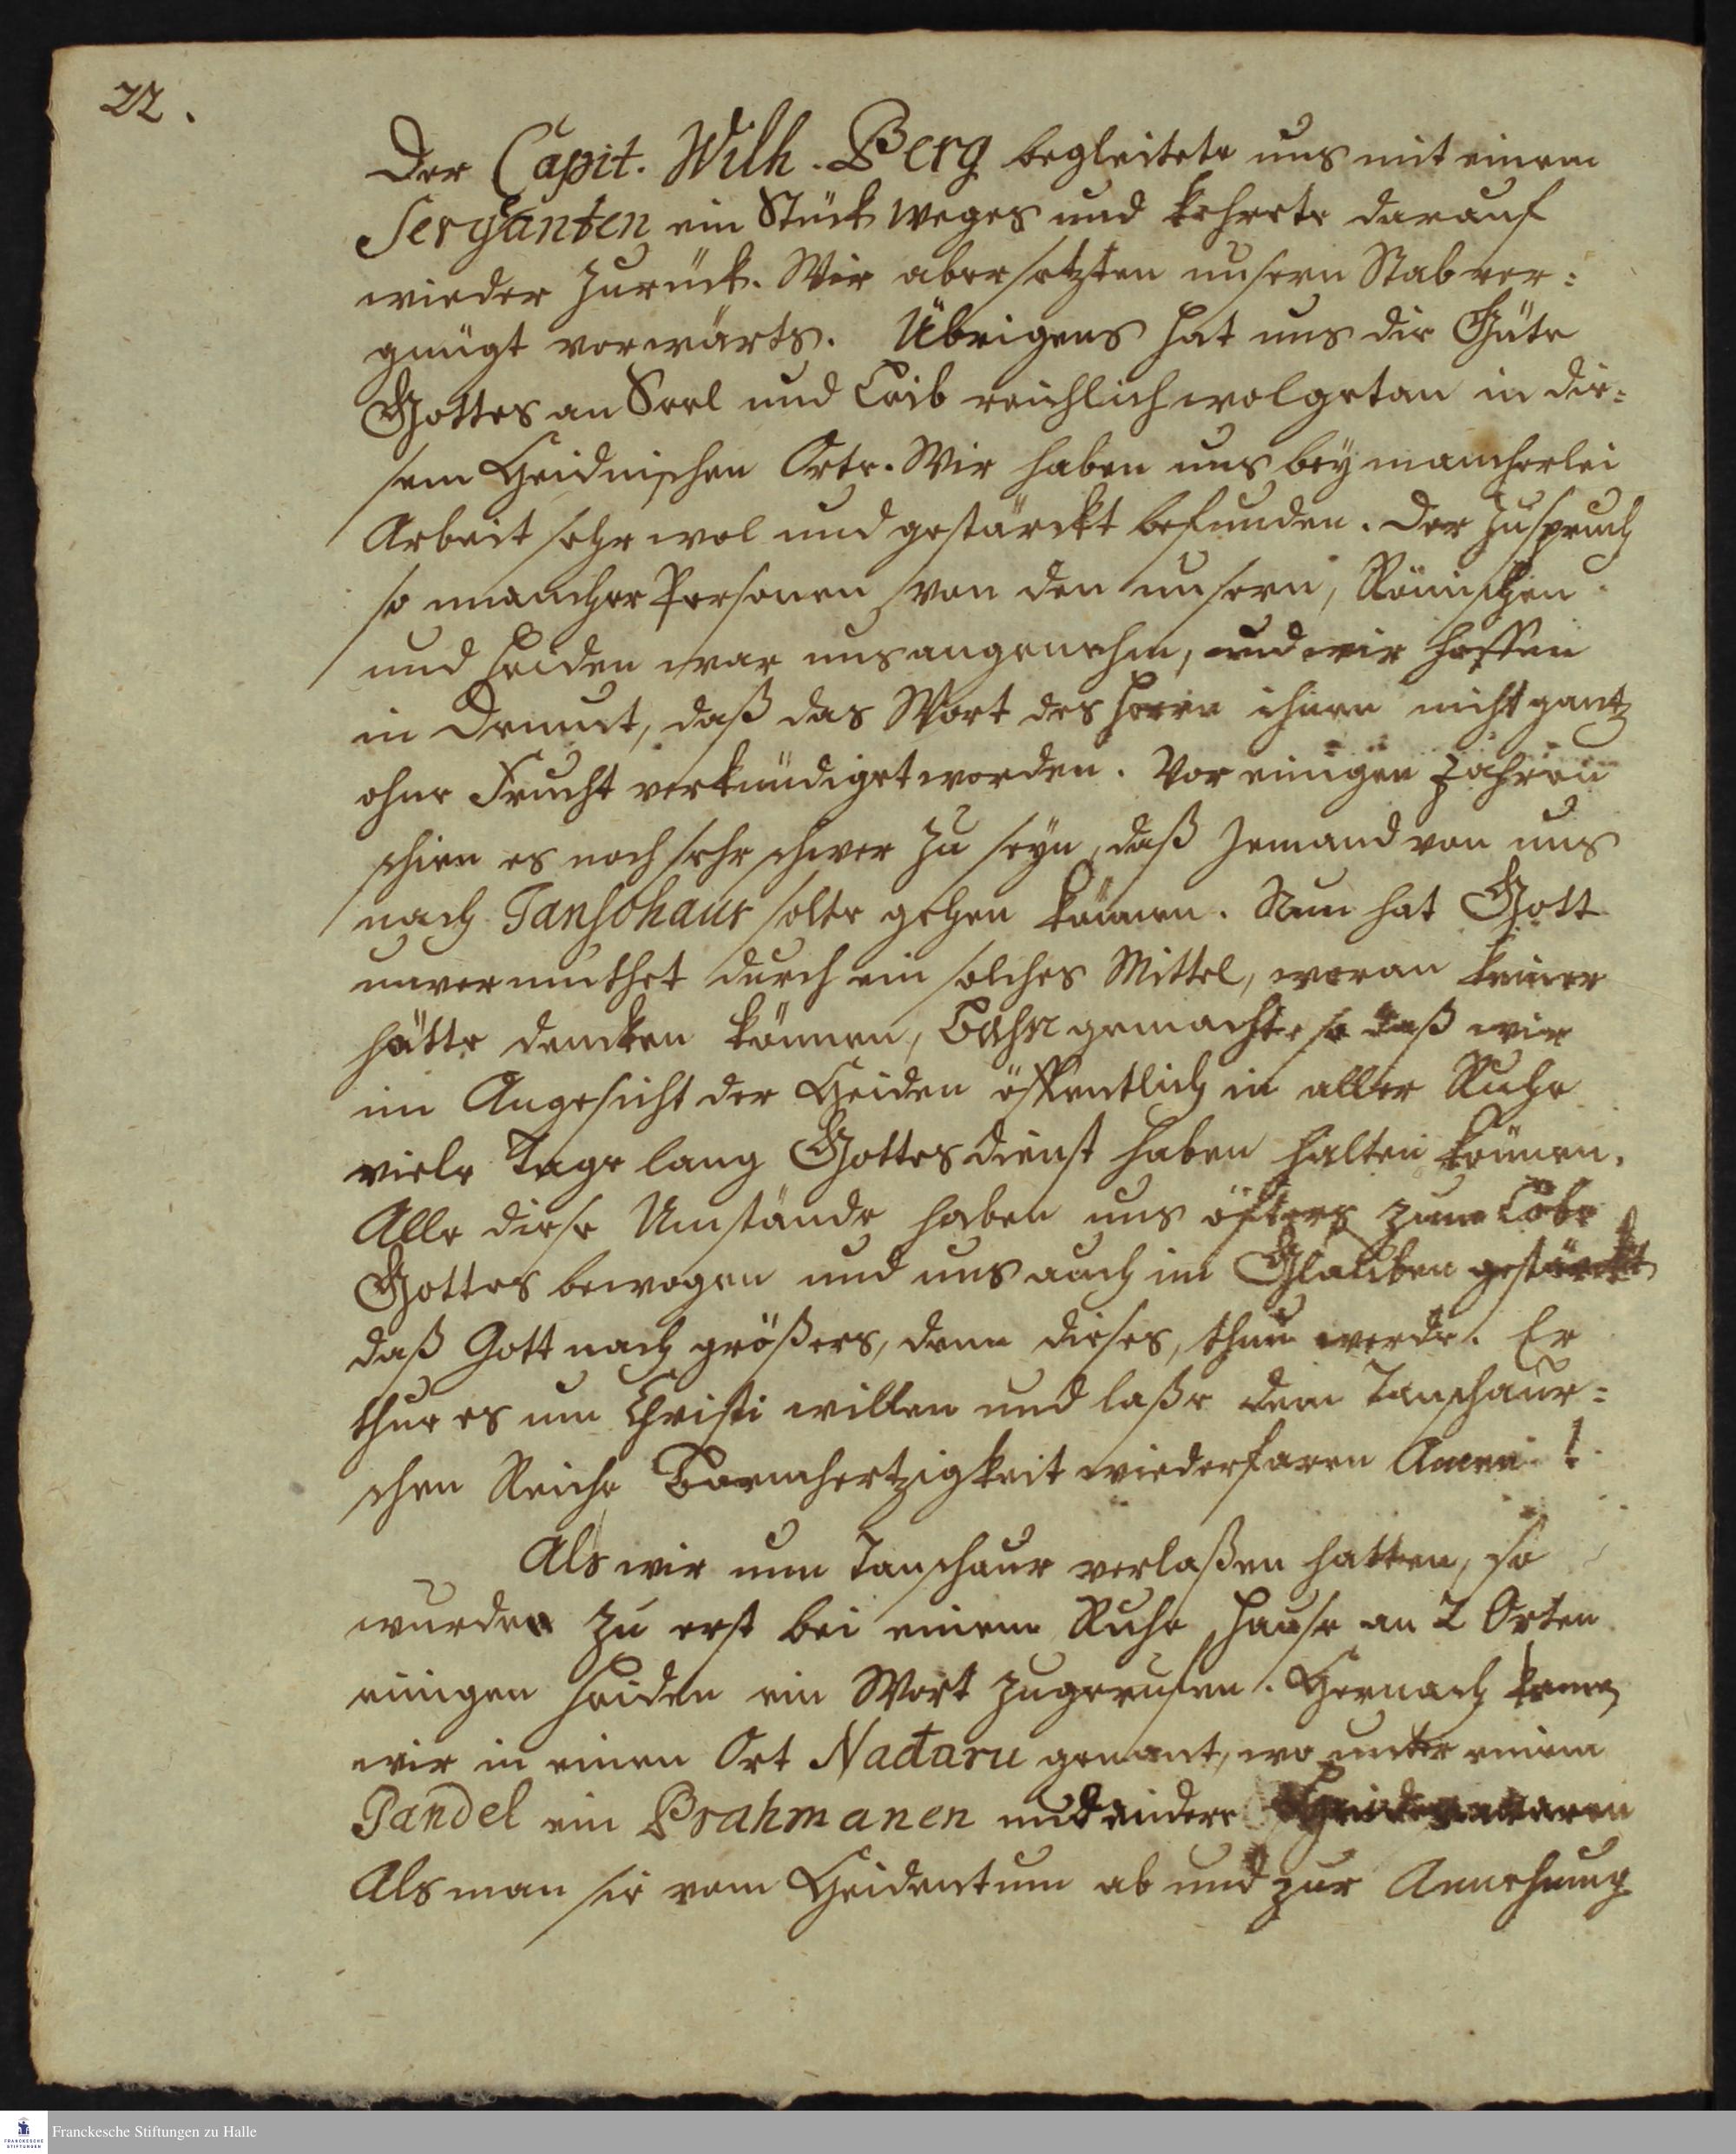 22.
Der Capit. Wilh. Berg begleitete uns mit einem
Serganten ein Stück weges und kehrete darauf
wieder zurück. Wir aber setzten unsern Stab ver=
gnügt vorwärts. Übrigens hat uns die Güte
Gottes an Seel und Leib reichlich wolgetan in die=
sem Heidnischen Orte. Wir haben uns bey mancherlei
Arbeit sehr wol und gestärckt befunden. Der Zuspruch
so mancher Personen von den unsern, Römischen
und Heiden war uns angenehm, und wir hoffen
in Demut, daß das Wort des Herrn ihnen nicht gantz
ohne Frucht verkündiget worden. Vor einigen Jahren
schien es noch sehr schwer zu seyn, daß Jemand von uns
nach Tanschaur solte gehen können. Nun hat Gott
unvermuthet durch ein solches Mittel, woran keiner
hätte dencken können, Bahn gemacht, so daß wir
im Angesicht der Heiden öffentlich in aller Ruhe
viele Tage lang Gottesdienst haben halten können.
Alle diese Umstände haben uns öfters zum Lobe
Gottes bewogen und uns auch im Glauben gestärckt
daß Gott noch größers, denn dieses, thun werde. Er
thue es um Christi willen und laße dem Tanschaur=
schen Reiche Barmhertzigkeit wiederfaren Amen!
Als wir nun Tanschaur verlaßen hatten, so
wurden zu erst bei einem Ruhe Hause an 2 Orten
einigen Heiden ein Wort zugerufen. Hernach kamen
wir in einen Ort Nadaru genant, wo unter einem
Pandel ein Brahmanen und andere Heiden waren
Als man sie vom Heidentum ab und zur Annehmung
Franckesche Stiftungen zu Halle
FRANCKESCHE
STIFTUNGEN